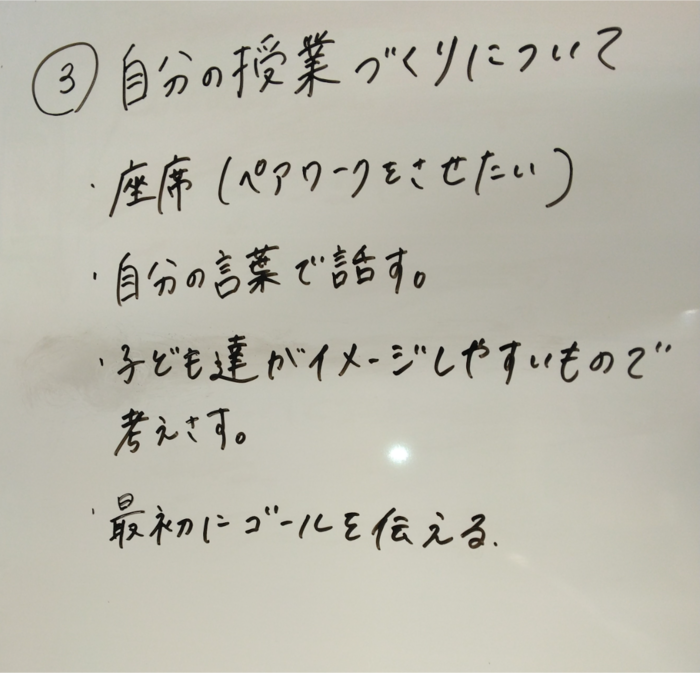 ③ 自分の授業づくりについて
・座席(ペアワークをさせたい)
・自分の言葉で話す。
・子ども達がイメージしやすいもので
考えさす。
・最初にゴールを伝える.